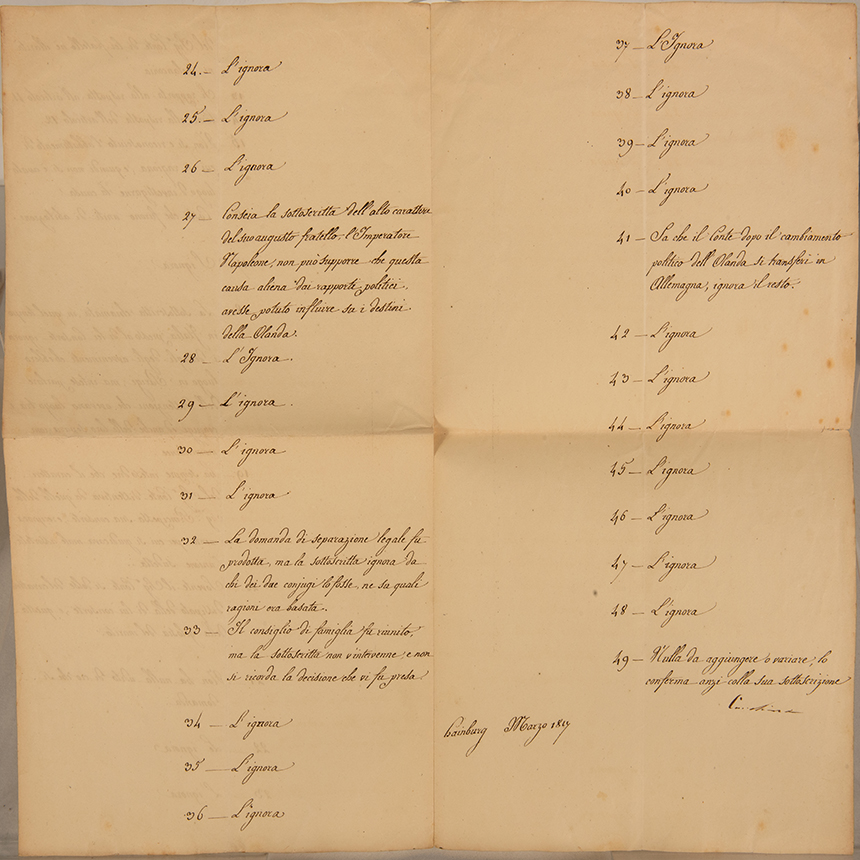 24. — L'ignora
25. — L'ignora
26 — L'ignora
27 — Conscia la sottoscritta dell'alto carattere
del suo augusto fratello, l'Imperatore
Napoleone, non può supporre che questa
causa aliena dai rapporti politici,
avesse potuto influire su i destini
della Olanda.
28 — L'Ignora.
29 — L'ignora.
30 — L'ignora
31 — L'ignora
32 — La domanda di separazione legale fu
prodotta, ma la sottoscritta ignora da
chi dei due conjugi lo fosse, ne sa quali
ragioni era basata.
33 — Il consiglio di famiglia fu riunito,
ma la sottoscritta non v'intervenne, e non
si ricorda la decisione che vi fu presa
34 — L'ignora
35 — L'ignora
36 — L'ignora
37 — L'Ignora
38 — L'ignora
39 — L'ignora
40 — L'ignora
41 — Sa che il Conte dopo il cambiamento
politico dell'Olanda si transferì in
Allemagna, ignora il resto.
42 — L'ignora
43 — L'ignora
44 — L'ignora
45 — L'ignora
46 — L'ignora
47 — L'ignora
48 — L'ignora
49 — Nulla da aggiungere o variare, lo
conferma anzi colla sua sottoscrizione
Hainburg Marzo 1817